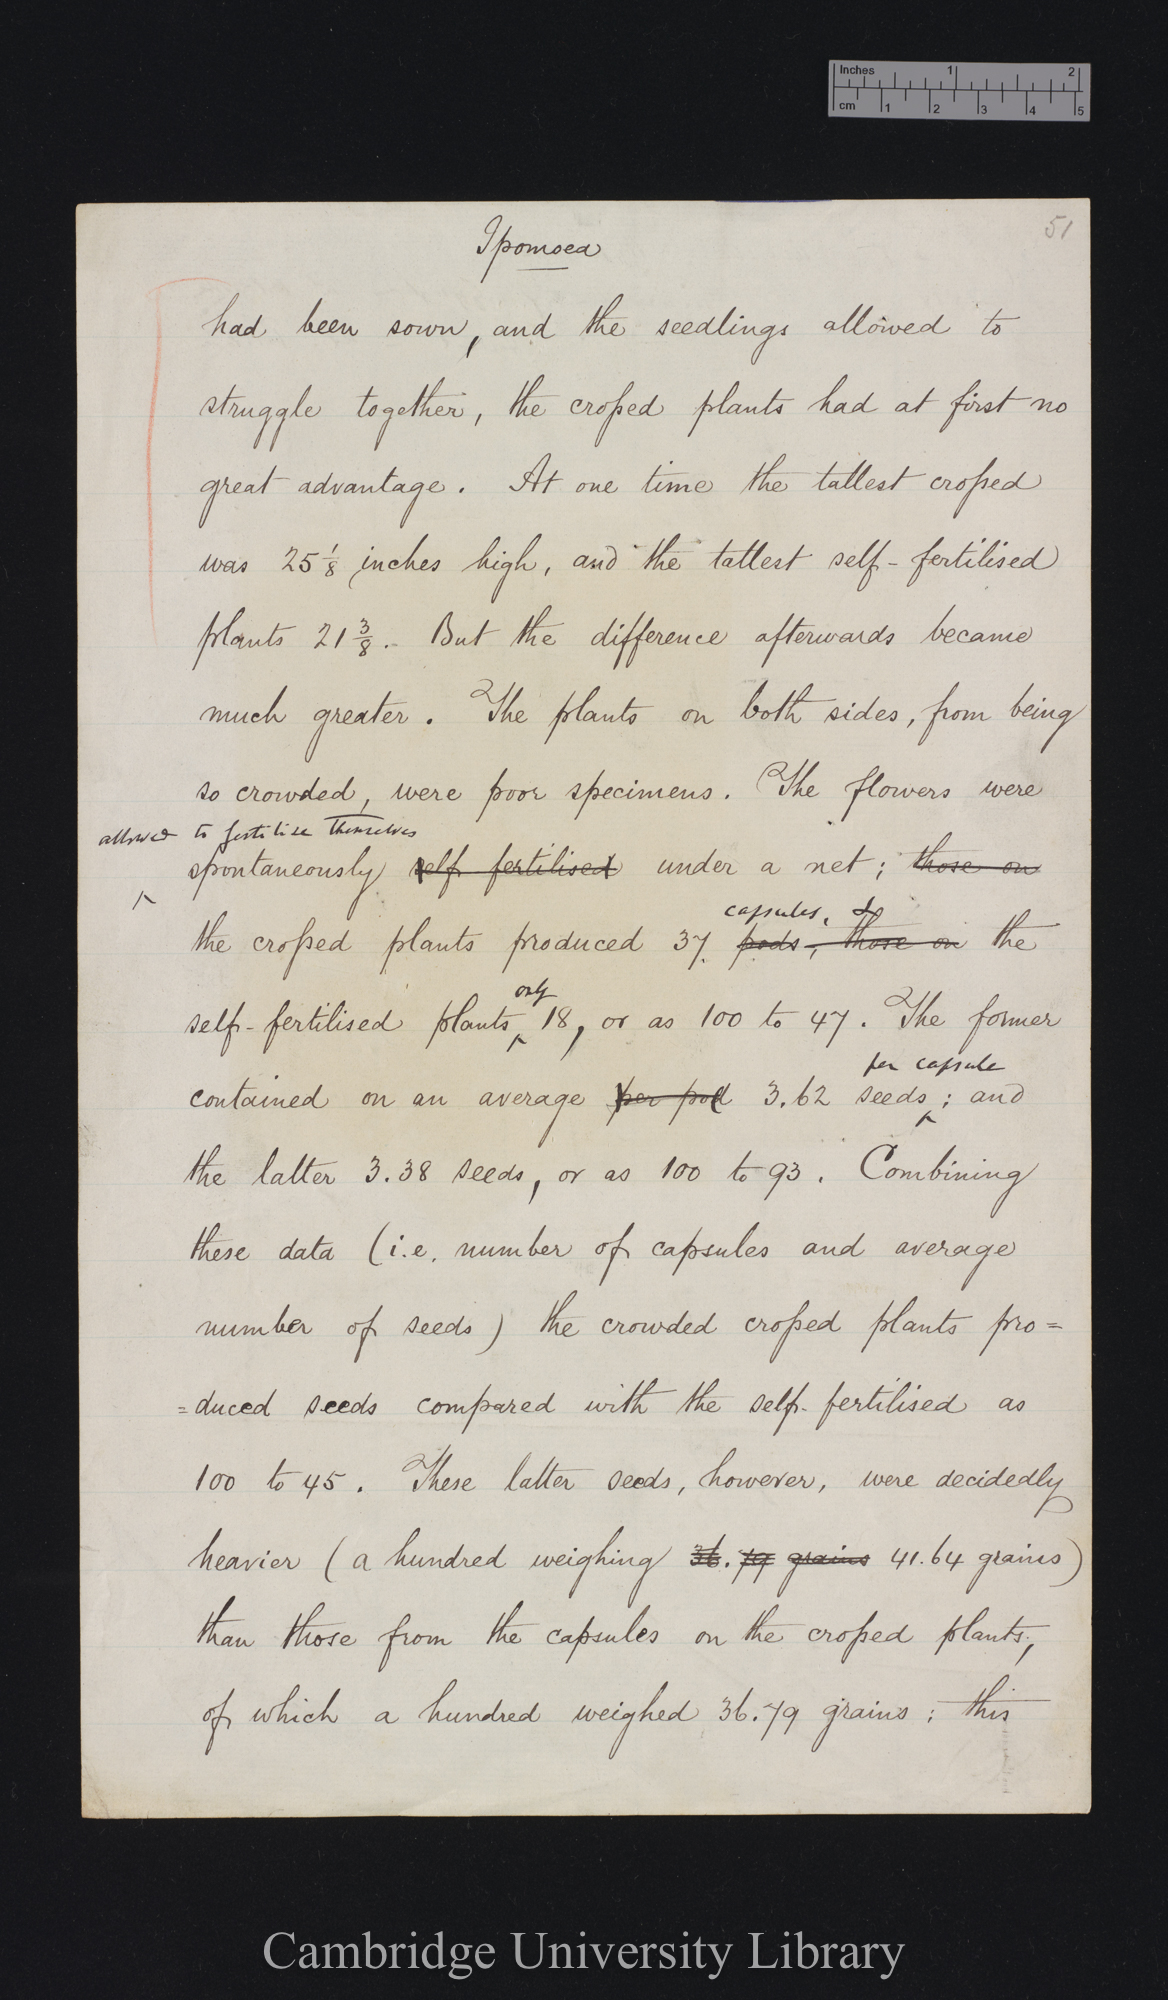 Inches 1 2
cm 1 2 3 4 5
51
Ipomoea
had been sown, and the seedlings allowed to
struggle together, the crossed plants had at first no
great advantage. At one time the tallest crossed
was 25 1/8 inches high, and the tallest self-fertilised
plants 21 3/8. But the difference afterwards became
much greater. The plants on both sides, from being
so crowded, were poor specimens. The flowers were
allowed to fertilise themselves
spontaneously self fertilised under a net; those on
capsules, &
the crossed plants produced 37 pods, those on the
only
self-fertilised plants 18, or as 100 to 47. The former
per capsule
contained on an average per pod 3.62 seeds; and
the latter 3.38 seeds, or as 100 to 93. Combining
these data (i.e. number of capsules and average
number of seeds) the crowded crossed plants pro=
=duced seeds compared with the self-fertilised as
100 to 45. These latter seeds, however, were decidedly
heavier (a hundred weighing 36.79 grains 41.64 grains)
than those from the capsules on the crossed plants,
of which a hundred weighed 36.79 grains; this
Cambridge University Library